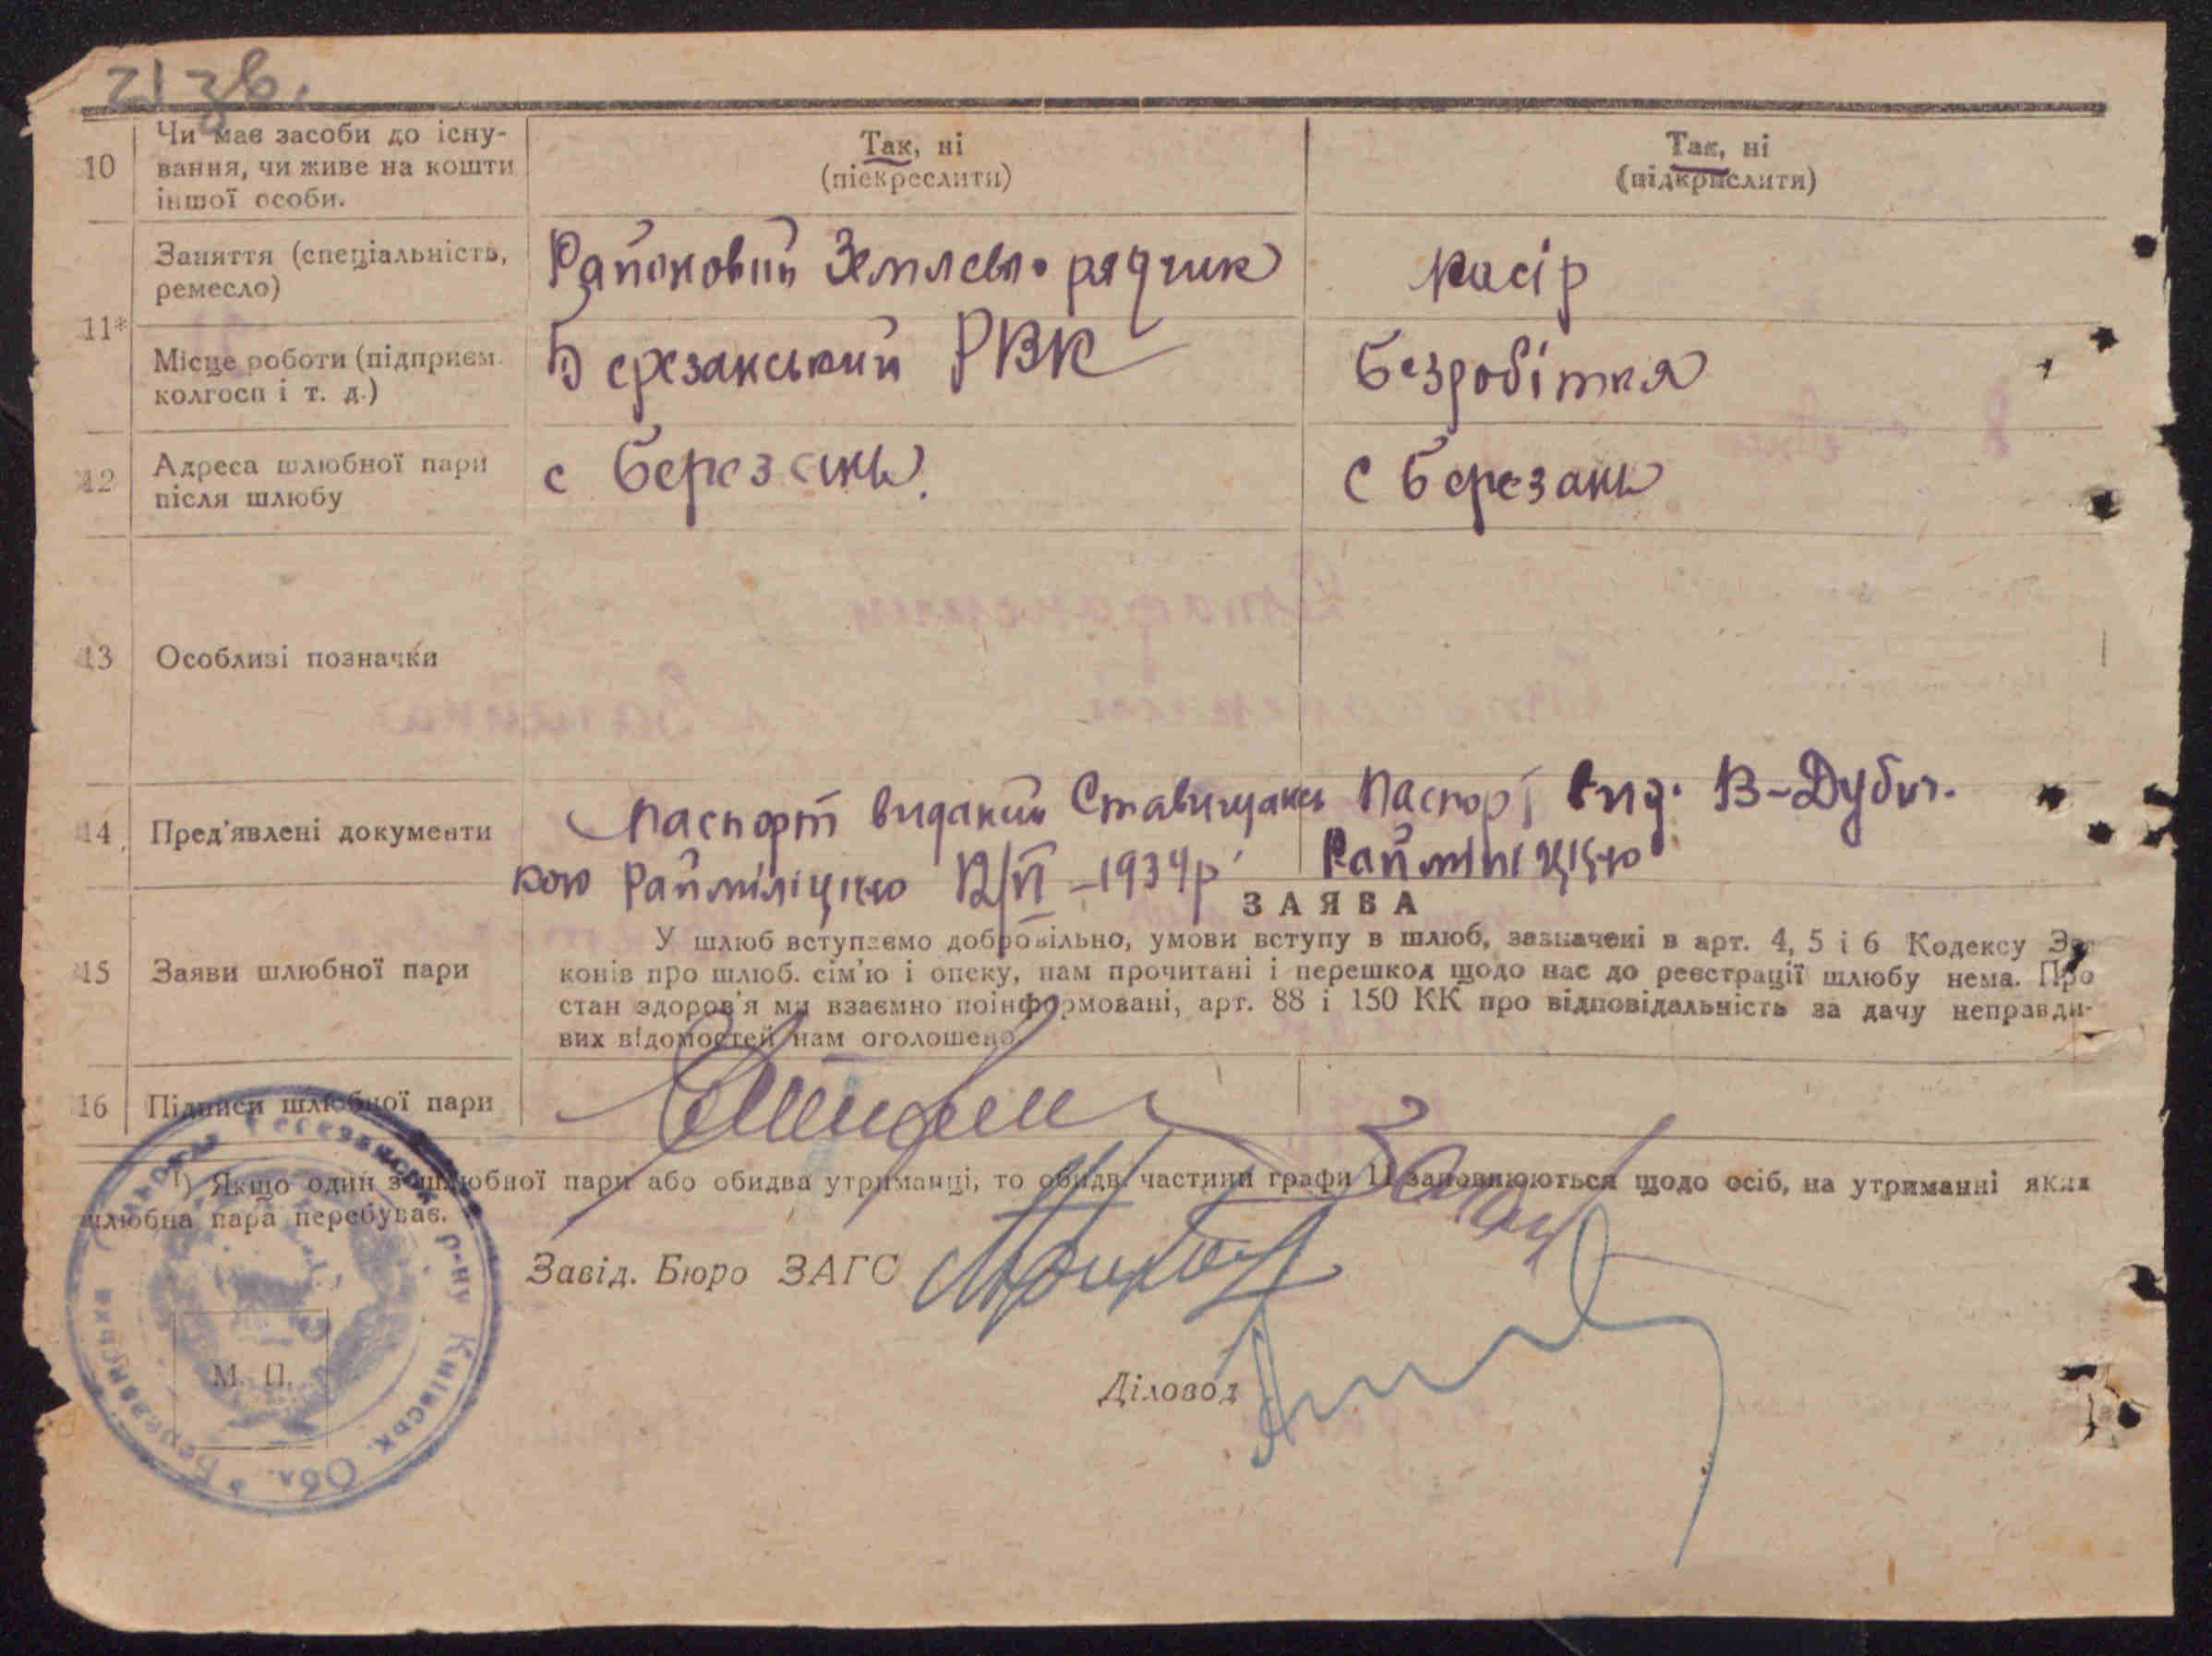 21 зв.
10 Чи має засоби до існу-
вання, чи живе на кошти
іншої особи.
Так, ні
(піекреслити)
Так, ні
(підкрислити)
11*
Заняття (спеціальність,
ремесло)
Районовий Землевпо рядчик
касір
Місце роботи (підприєм.
колгосп і т. д.)
Березанський РВК
безробітня
12 Адреса шлюбної пари
після шлюбу
с Березань.
с Березань
13 Особливі позначки
14 Пред'явлені документи
паспорт виданий Ставищансь
кою Райміліцією 12/VI -1934р
Паспорт вид. В-Дубич.
Райміліцією
15 Заяви шлюбної пари
ЗАЯВА
У шлюб вступаємо добровільно, умови вступу в шлюб, зазначені в арт. 4, 5 і 6 Кодексу За-
конів про шлюб. сім'ю і опеку, нам прочитані і перешкод щодо нас до реєстрації шлюбу нема. Про
стан здоров'я ми взаємно поінформовані, арт. 88 і 150 КК про відповідальність за дачу неправди-
вих відомостей нам оголошено.
16 Підписи шлюбної пари
¹) Якщо один з шлюбної пари або обидва утриманці, то обидві частини графи 11 заповнюються щодо осіб, на утриманні яких
шлюбна пара перебуває.
Завід. Бюро ЗАГС
Діловод
М. П.
р-ну Київськ. Обл.